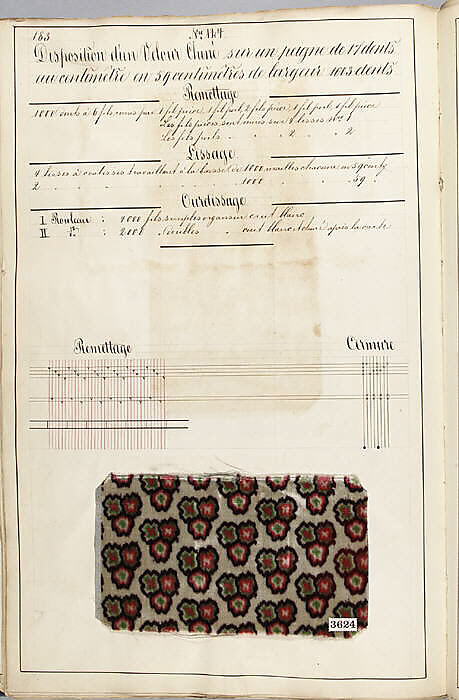 183
Disposition d'un Velour Chiné sur un peigne de 17 dents
au centimètre en 59 centimètres de largeur 1003 dents
Remettage
1000 dents à 6 fils, remis par 1 fil pièce 1 fil poil, 2 fils pièce 1 fil poil, 1 fil pièce
Les fils pièces sont remis sur 4 lisses
Les fils poils " " 2 " 2
Lissage
4 lisses à coulisses travaillant à la baisse de 1000 mailles chacune en 59 cent
2 " " 1000 " 59 "
Ourdissage
I Rouleau : 4000 fils simples organsin cuit blanc
II do : 2000 doubles " cuit blanc et chiné après la corde
Remettage Armure
3624